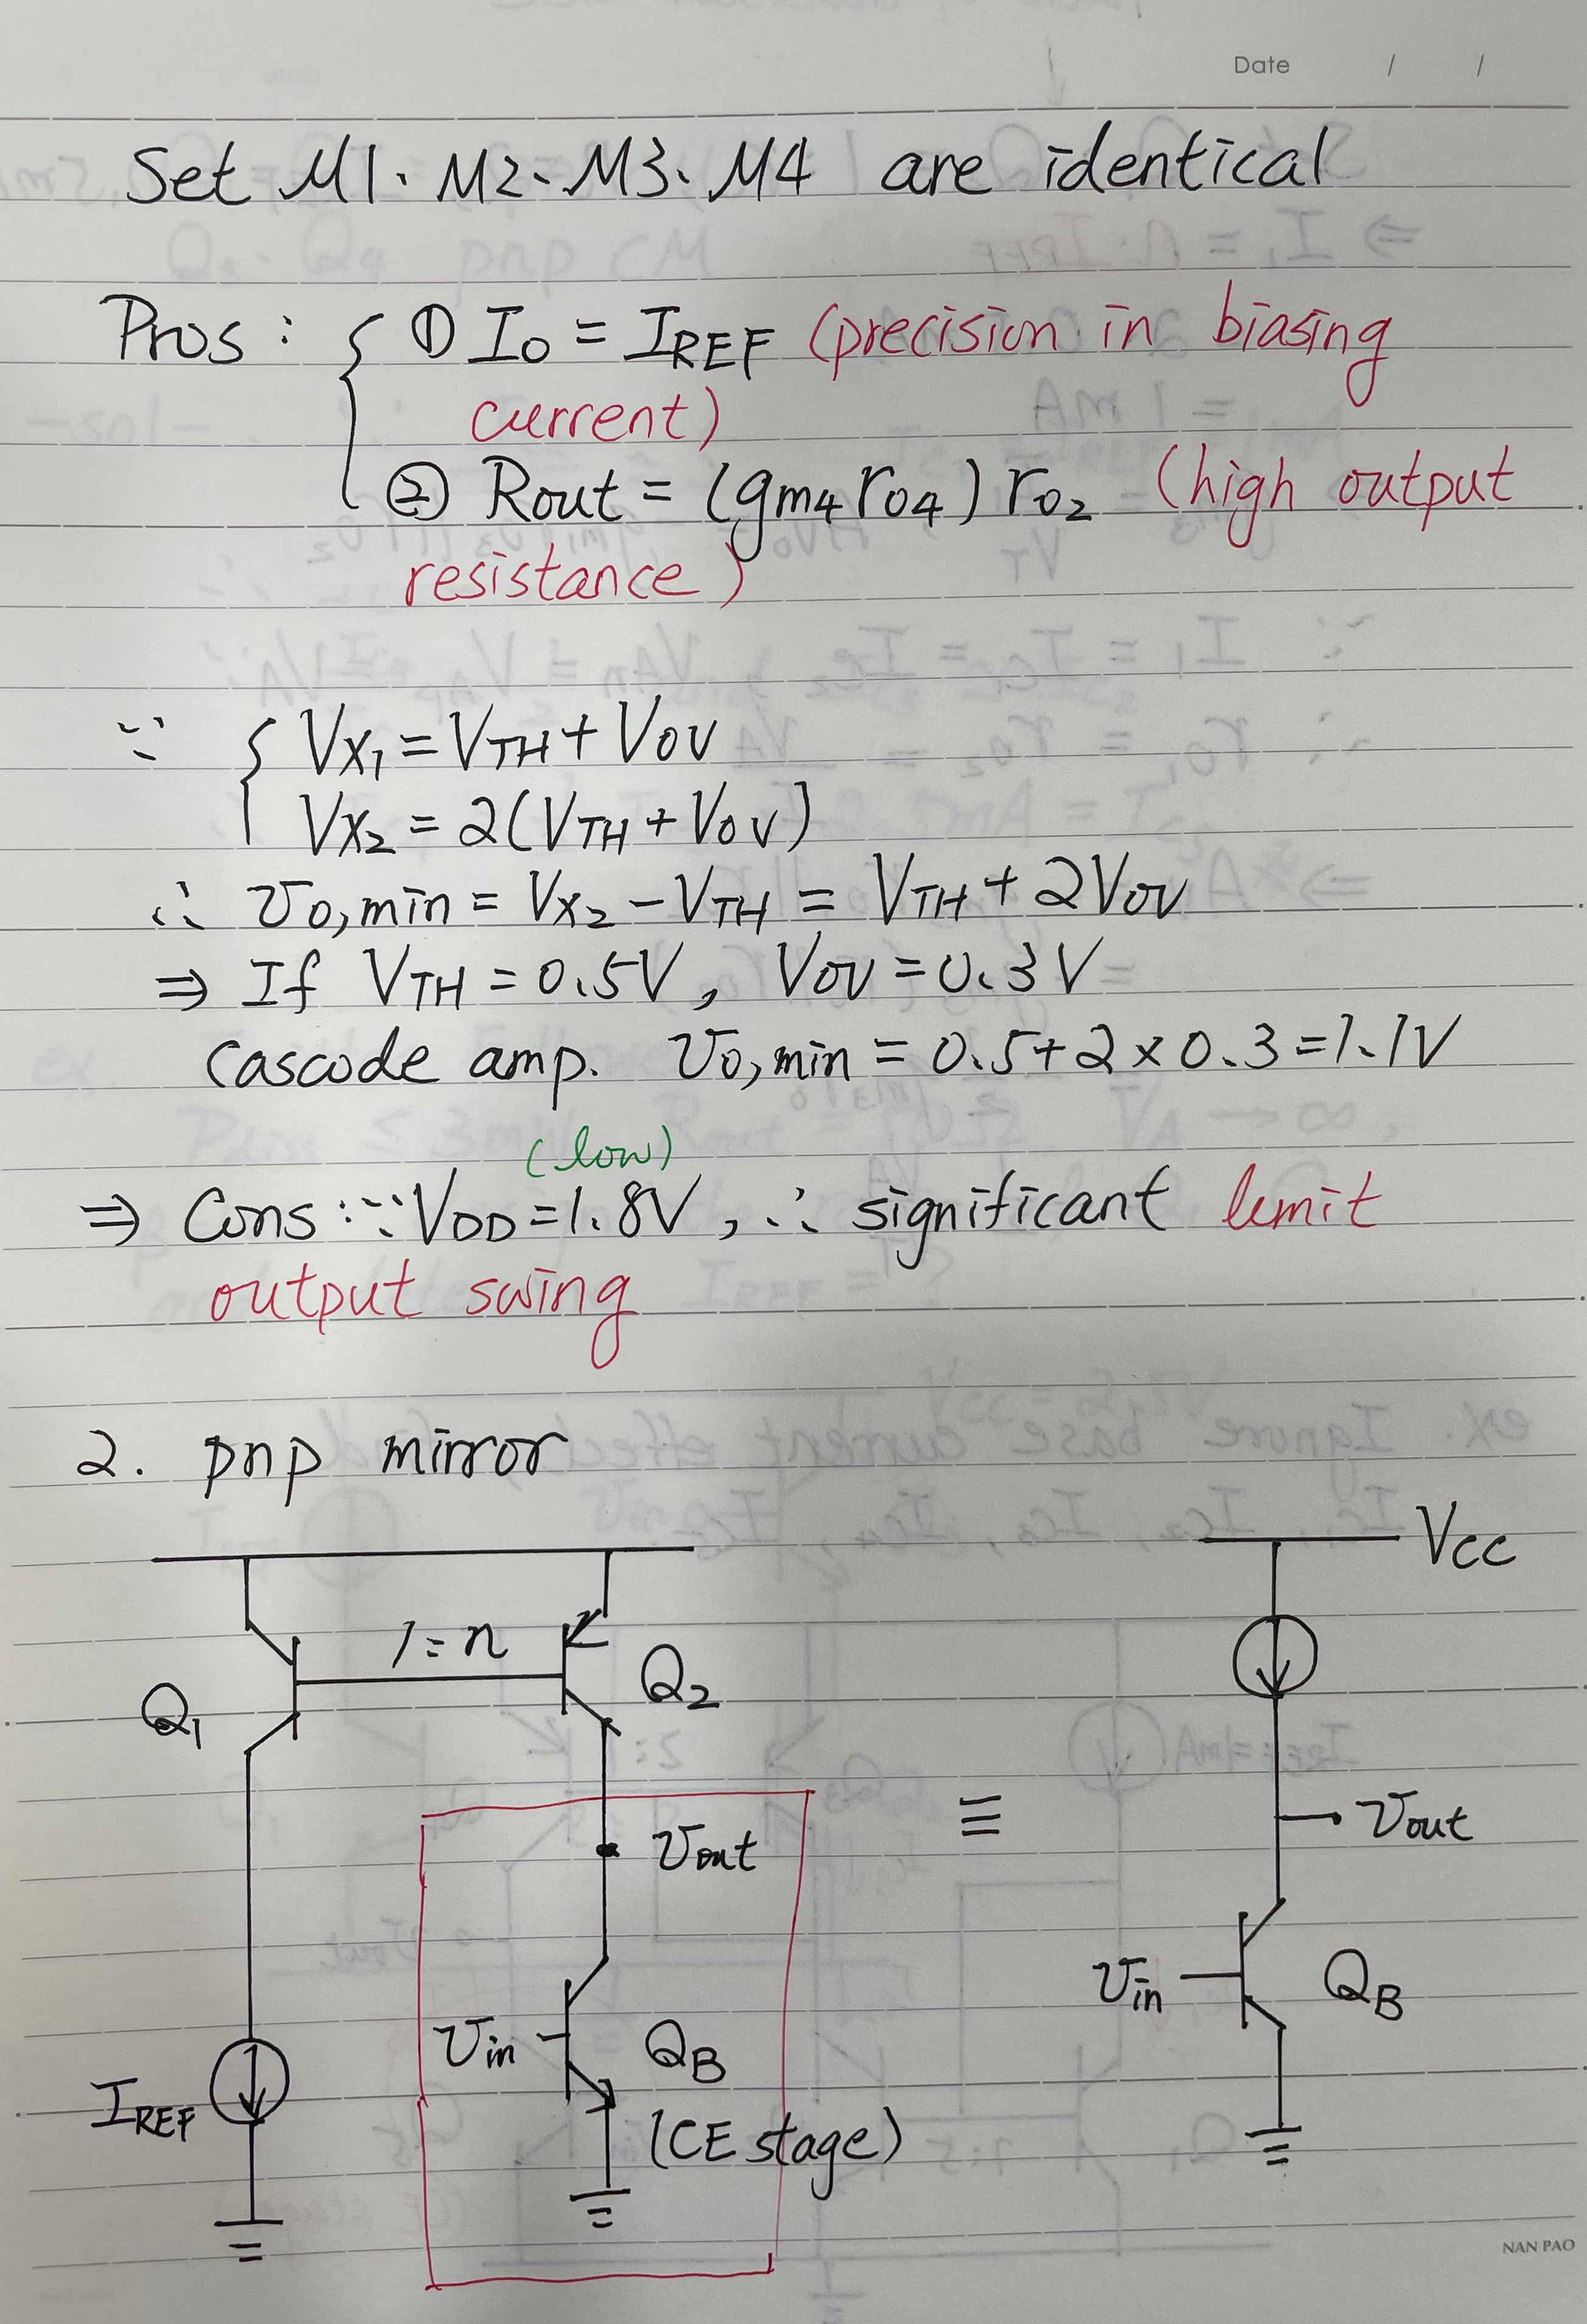 Date / /
Set M1、M2、M3、M4 are identical
Pros : { ① IO = IREF (precision in biasing
current)
② Rout = (gm4 rO4) rO2 (high output
resistance)
∵ { VX1 = VTH + VOV
VX2 = 2(VTH + VOV)
∴ vO,min = VX2 - VTH = VTH + 2VOV
⇒ If VTH = 0.5V, VOV = 0.3V
cascode amp. vO,min = 0.5 + 2 × 0.3 = 1.1V
(low)
⇒ Cons : ∵ VDD = 1.8V, ∴ significant limit
output swing
2. pnp mirror
VCC
1 : n
Q1
Q2
≡
vout
vout
vin
QB
vin
QB
IREF
(CE stage)
NAN PAO